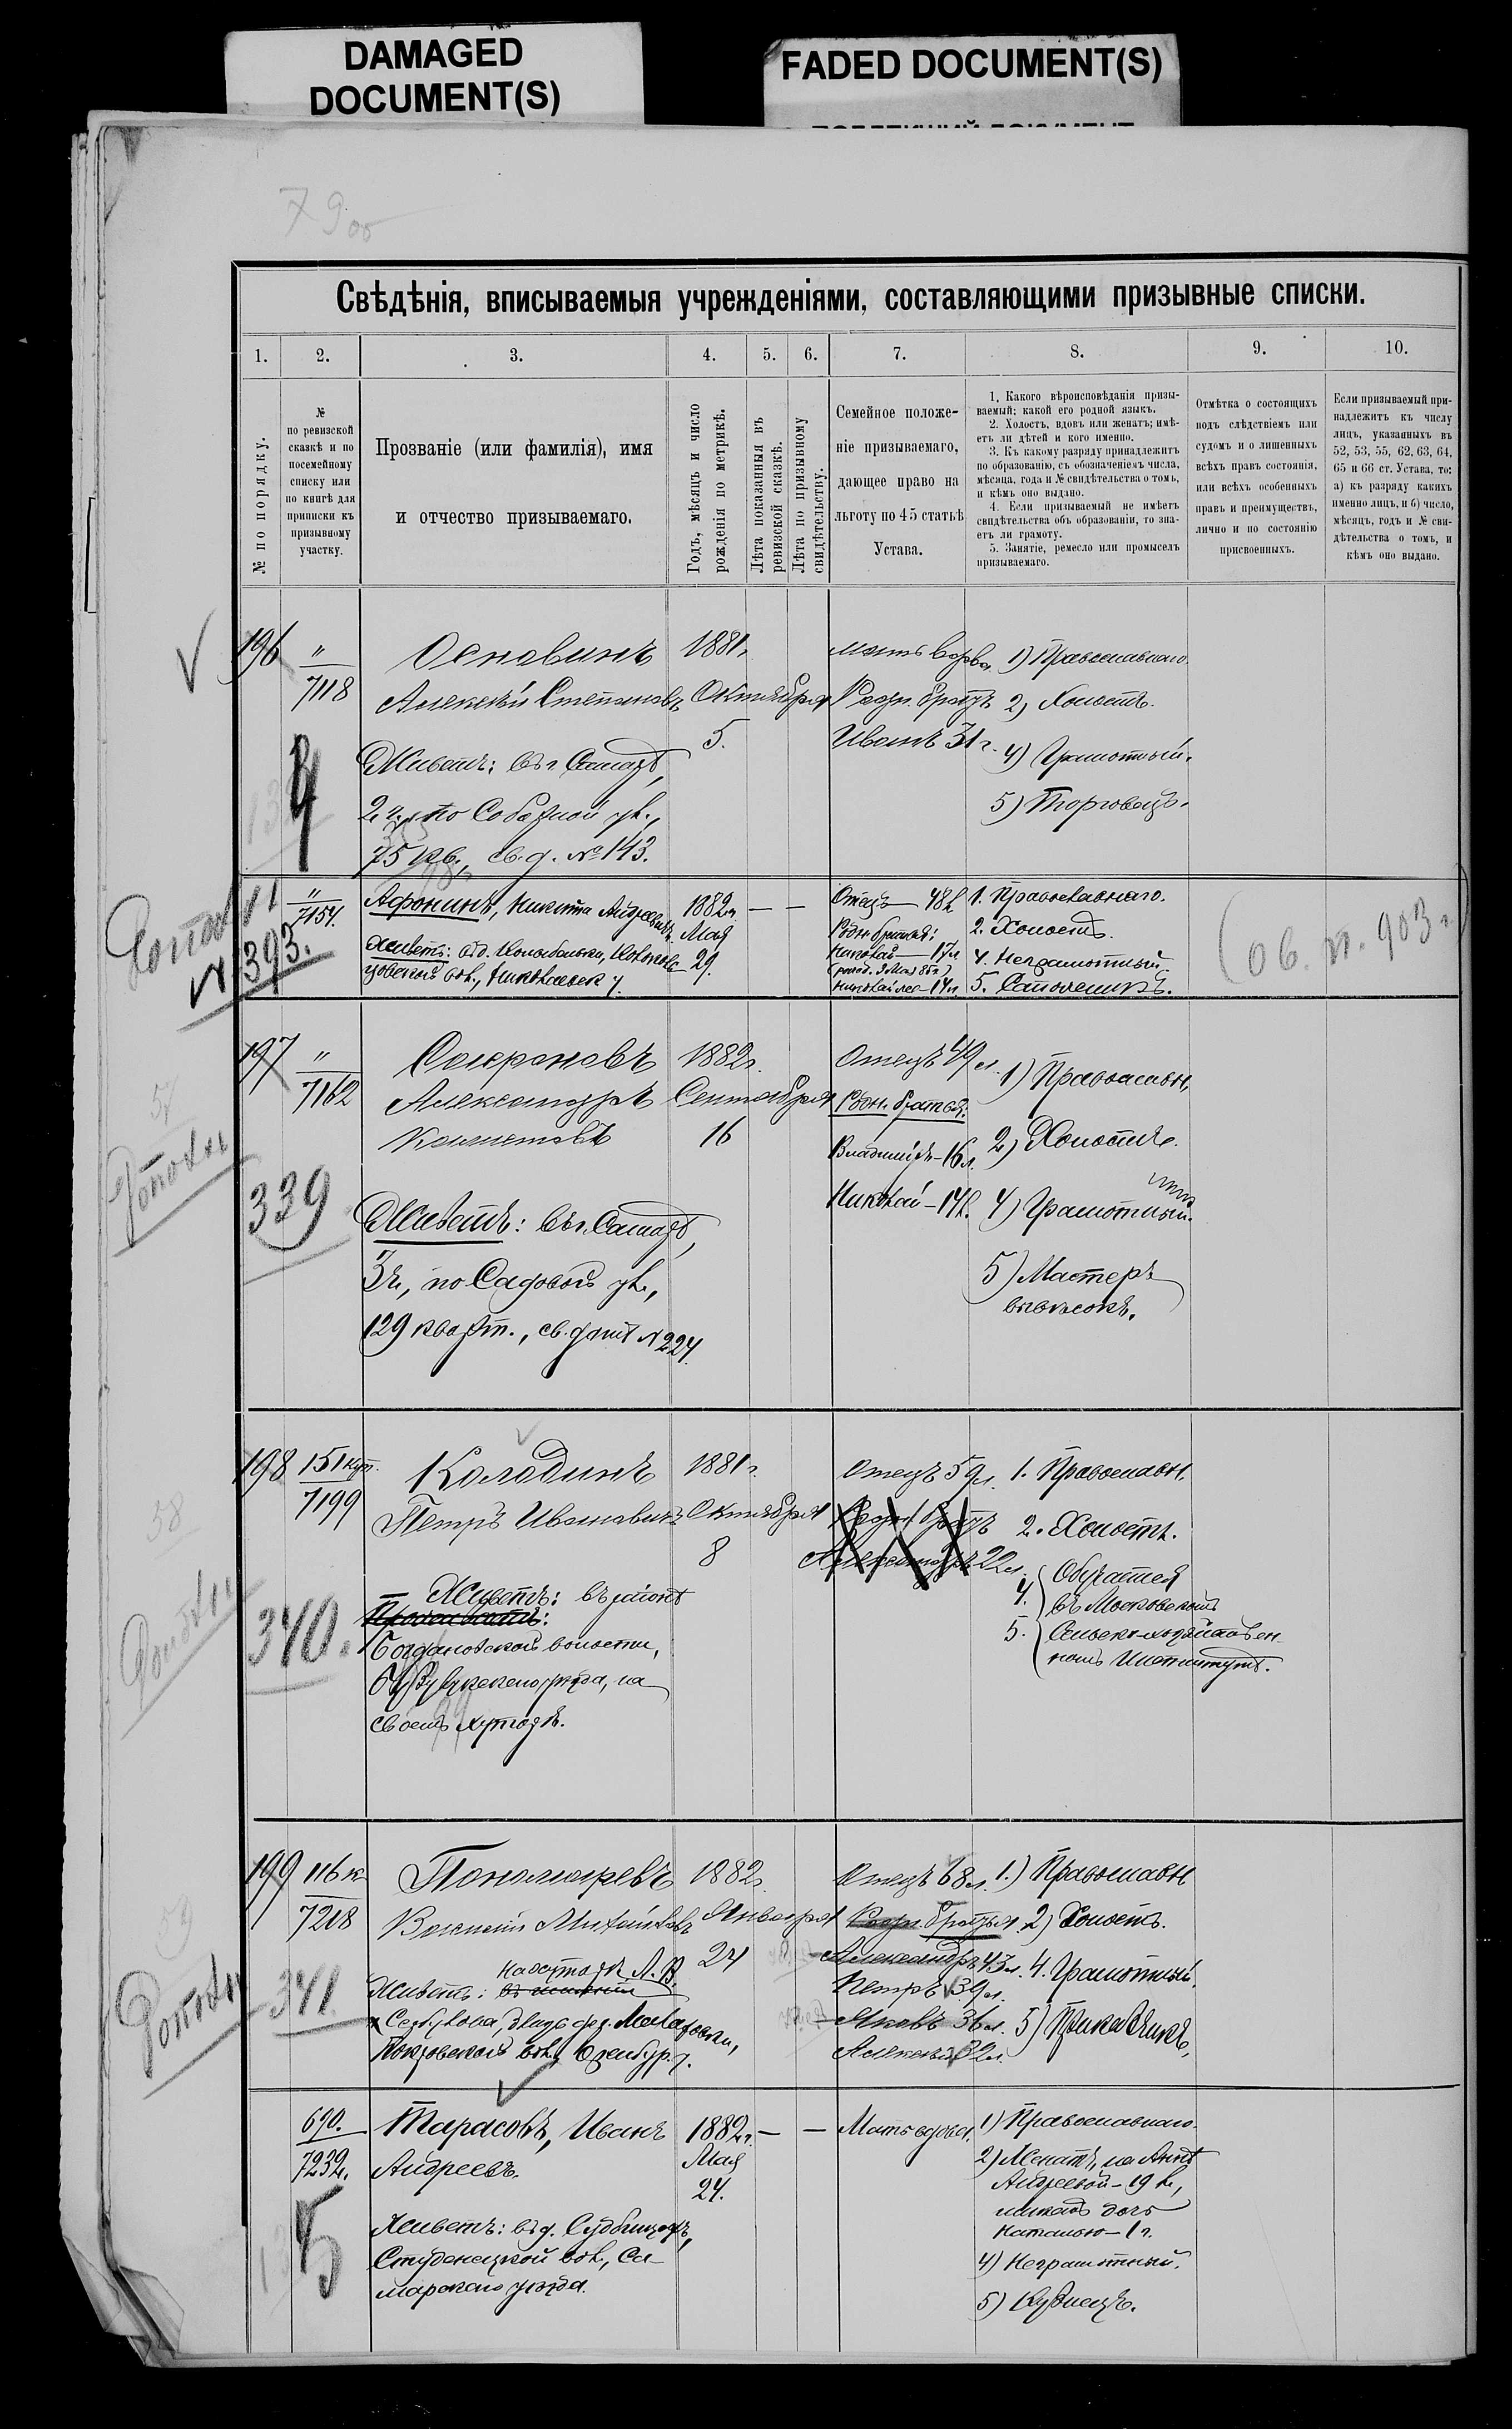 DAMAGED
DOCUMENT(S)
FADED DOCUMENT(S)
7900
Свѣдѣнія, вписываемыя учрежденіями, составляющими призывные списки.
1.
2.
3.
4.
5.
6.
7.
8.
9.
10.
№ по порядку.
№
по ревизской
сказкѣ и по
посемейному
списку или
по книгѣ для
приписки къ
призывному
участку.
Прозваніе (или фамилія), имя
и отчество призываемаго.
Годъ, мѣсяцъ и число
рожденія по метрикѣ.
Лѣта показанныя въ
ревизской сказкѣ.
Лѣта по призывному
свидѣтельству.
Семейное положе-
ніе призываемаго,
дающее право на
льготу по 45 статьѣ
Устава.
1. Какого вѣроисповѣданія призы-
ваемый; какой его родной языкъ.
2. Холостъ, вдовъ или женатъ; имѣ-
етъ ли дѣтей и кого именно.
3. Къ какому разряду принадлежитъ
по образованію, съ обозначеніемъ числа,
мѣсяца, года и № свидѣтельства о томъ,
и кѣмъ оно выдано.
4. Если призываемый не имѣетъ
свидѣтельства объ образованіи, то зна-
етъ ли грамоту.
5. Занятіе, ремесло или промыселъ
призываемаго.
Отмѣтка о состоящихъ
подъ слѣдствіемъ или
судомъ и о лишенныхъ
всѣхъ правъ состоянія,
или всѣхъ особенныхъ
правъ и преимуществъ,
лично и по состоянію
присвоенныхъ.
Если призываемый при-
надлежитъ къ числу
лицъ, указанныхъ въ
52, 53, 55, 62, 63, 64,
65 и 66 ст. Устава, то:
а) къ разряду какихъ
именно лицъ, и б) число,
мѣсяцъ, годъ и № сви-
дѣтельства о томъ, и
кѣмъ оно выдано.
196
"
7118
4
Основинъ
Алексѣй Степановъ
Живетъ: въ г. Самарѣ,
2 ч., по Соборной ул.,
75 кв., св. д. № 143.
1881 г.
Октября
5.
мать вдова,
Родн. братъ
Иванъ 31 г.
1) Православнаго.
2) Холостъ.
4) Грамотный.
5) Торговецъ.
393.
"
7154.
Афонинъ, Никита Андреевичъ
Живетъ:
Николаевск. у.
1882 г.
Мая
29.
— —
Отецъ — 48 л.
Родн. братья:
Николай — 17 л.
14 л.
1. Православнаго.
2. Холостъ.
4. Неграмотный.
5. Сапожникъ.
197
"
7162
57
339
Софроновъ
Александръ
Живетъ: въ г. Самарѣ,
3 ч., по Садовой ул.,
129 кварт., св. домѣ № 224.
1882 г.
Сентября
16
Отецъ 49 л.
Родн. братья:
Владиміръ — 16 л.
Николай — 14 л.
1) Православн.
2) Холостъ.
4) Грамотный.
5) Мастеръ
вывѣсокъ.
198
151 куп.
7199
58
340.
Колодинъ
Петръ Ивановичъ
Живетъ: въ районѣ
Богдановской волости,
Бузулукскаго уѣзда, на
своемъ хуторѣ.
1881 г.
Октября
8
Отецъ 59 л.
Родн. братъ
Александръ 22 л.
1. Православн.
2. Холостъ.
4.
5.
Обучается
въ Московскомъ
Сельско-хозяйствен-
номъ Институтѣ.
199
116 к
7208
59
341
Пономаревъ
Василій Михайловъ
на хуторѣ А. В.
Живетъ: въ имѣніи
Покровской вол., Оренбур. у.
1882 г.
Января
24
Отецъ 68 л.
Родн. братья
Александръ 43 л.
Петръ 39 л.
Яковъ 36 л.
Алексѣй 32 л.
1.) Православн
2) Холостъ.
4. Грамотный.
5) Приказчикъ.
690.
7232.
5
Тарасовъ, Иванъ
Андреевъ.
Живетъ: въ д.
Студенецкой вол., Са-
марскаго уѣзда.
1882 г.
Мая
24.
— —
Мать вдова.
1) Православнаго.
2) Женатъ, на Аннѣ
Андреевой — 19 л.,
имѣетъ дочь
Наталью — 1 г.
4) Неграмотный.
5) Кузнецъ.